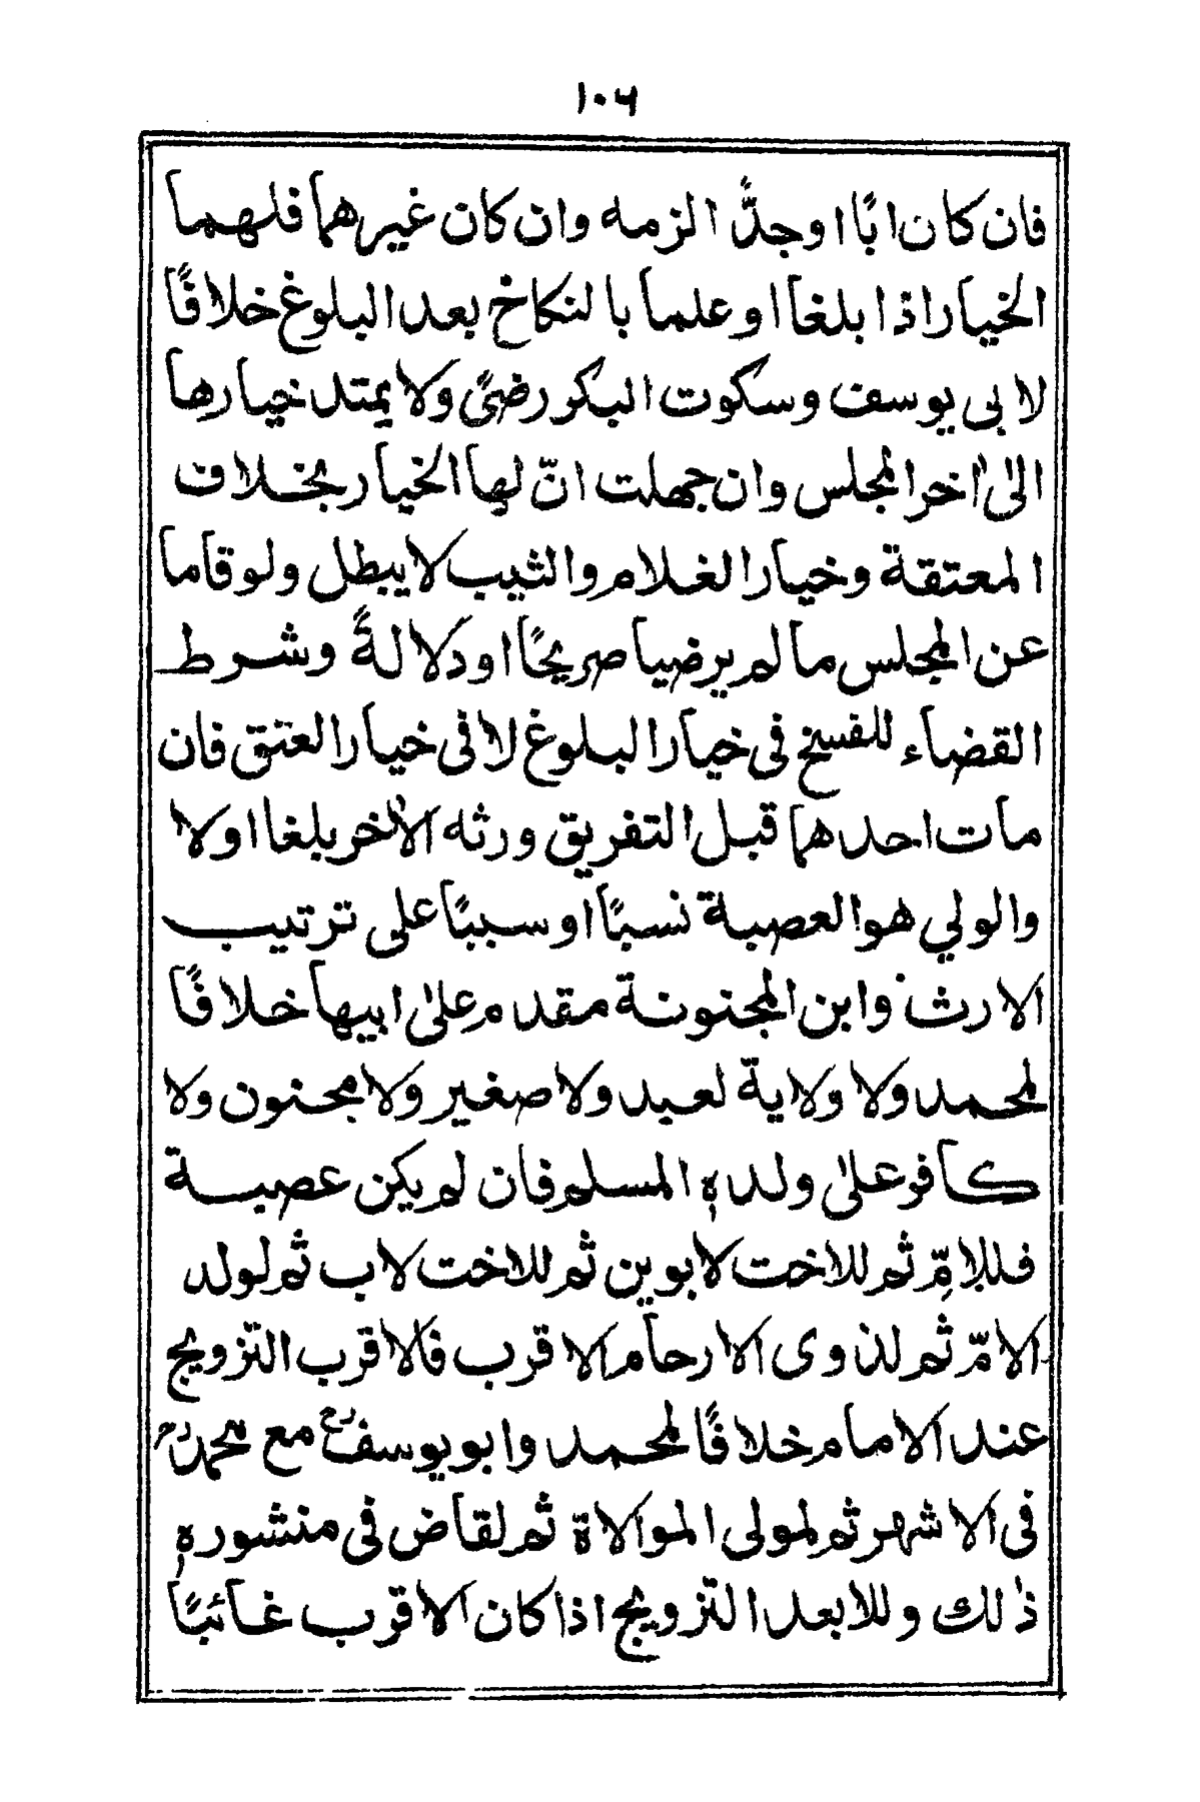 ١٠٦
فان كان ابًا اوجدًّا الزمه وان كان غيرهما فلهما
الخيار اذا بلغا او علما بالنكاح بعد البلوغ خلافًا
لابى يوسف وسكوت البكر رضىً ولا يمتد خيارها
الىٰ اٰخر المجلس وان جهلت انّ لها الخيار بخلاف
المعتقة وخيار الغلام والثيب لا يبطل ولو قاما
عن المجلس ما لم يرضيا صريحًا او دلالةً وشرط
القضاء للفسخ فى خيار البلوغ لا فى خيار العتق فان
مات احدهما قبل التفريق ورثه الاٰخر بلغا اولا
والولي هو العصبة نسبًا او سببًا على ترتيب
الارث وابن المجنونة مقدم علىٰ ابيها خلافًا
لمحمد ولا ولاية لعبد ولا صغير ولا مجنون ولا
كافر علىٰ ولده المسلم فان لم يكن عصبة
فللامِّ ثم للاخت لابوين ثم للاخت لاب ثم لولد
الامّ ثم لذوى الارحام الاقرب فالاقرب التزويج
عند الامام خلافًا لمحمد وابو يوسفؒ مع محمدؒ
فى الاشهر ثم لمولى الموالاة ثم لقاض فى منشوره
ذٰلك وللابعد التزويج اذا كان الاقرب غائبًا